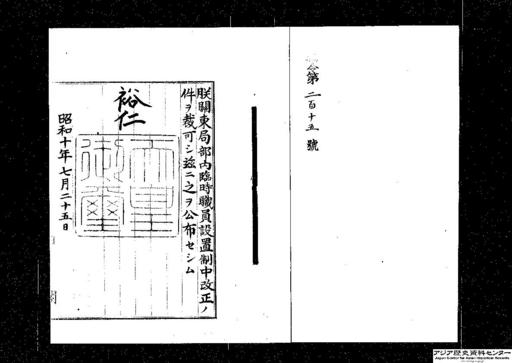 勅令第二百十五號
朕關東局部内臨時職員設置制中改正ノ
件ヲ裁可シ玆ニ之ヲ公布セシム
裕仁
天皇御璽
昭和十年七月二十五日
アジア歴史資料センター
Japan Center for Asian Historical Records